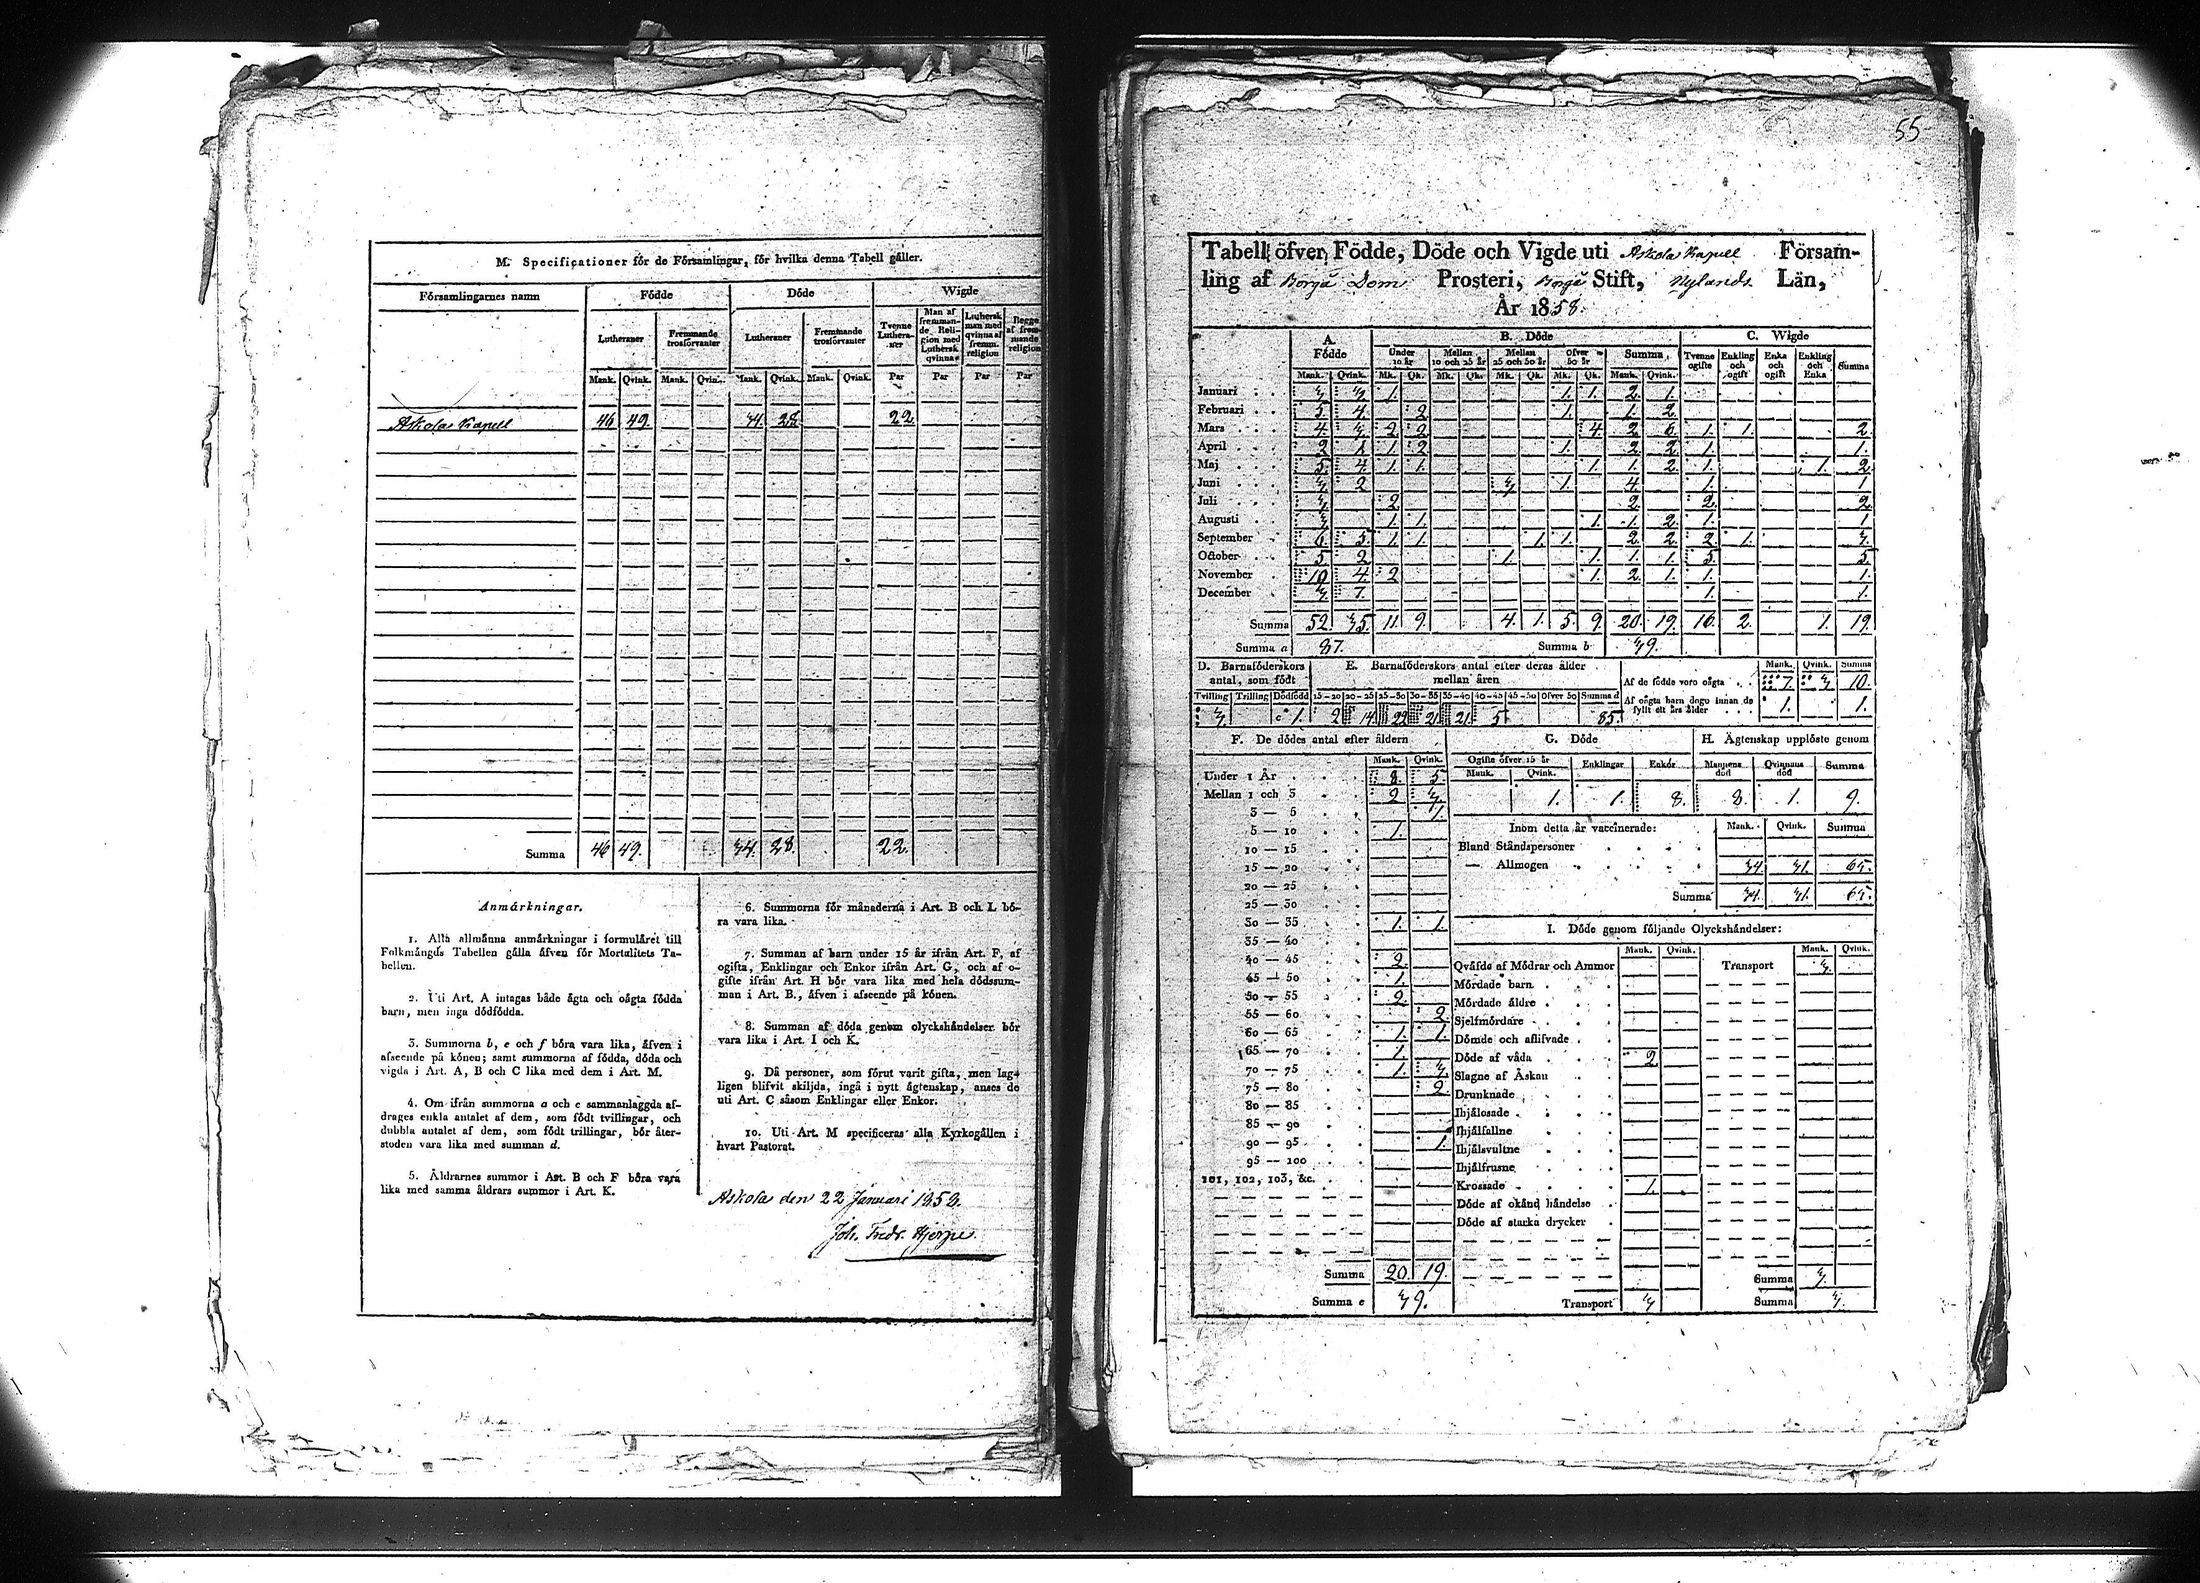 M. Specificationer för de Församlingar, för hvilka denna Tabell gäller.
Församlingarnes namn
Födde
Döde
Wigde
Lutheraner
Fremmande trosförvanter
Lutheraner
Fremmande trosförvanter
Tvenne Lutheraner
Man af fremmande Religion med Luthersk qvinna
Luthersk man med qvinna af fremm. religion
Begge af fremmande religion
Mank. Qvink. Mank. Qvin. Mank. Qvink. Mank. Qvink. Par Par Par Par
Askola Kapell 46 49. 34. 28. 22.
Summa 46 49. 34. 28. 22.
Anmärkningar.
1. Alla allmänna anmärkningar i formuläret till
Folkmängds Tabellen gälla äfven för Mortalitets Ta-
bellen.
2. Uti Art. A intagas både ägta och oägta födda
barn, men inga dödfödda.
3. Summorna b, e och f böra vara lika, äfven i
afseende på könen; samt summorna af födda, döda och
vigda i Art. A, B och C lika med dem i Art. M.
4. Om ifrån summorna a och c sammanlaggda af-
drages enkla antalet af dem, som födt tvillingar, och
dubbla antalet af dem, som födt trillingar, bör åter-
stoden vara lika med summan d.
5. Åldrarnes summor i Art. B och F böra vara
lika med samma åldrars summor i Art. K.
6. Summorna för månaderna i Art. B och L bö-
ra vara lika.
7. Summan af barn under 15 år ifrån Art. F, af
ogifta, Enklingar och Enkor ifrån Art. G, och af o-
gifte ifrån Art. H bör vara lika med hela dödssum-
man i Art. B., äfven i afseende på könen.
8. Summan af döda genom olyckshändelser bör
vara lika i Art. I och K.
9. Då personer, som förut varit gifta, men lag-
ligen blifvit skiljda, ingå i nytt ägtenskap, anses de
uti Art. C såsom Enklingar eller Enkor.
10. Uti Art. M specificeras alla Kyrkogällen i
hvart Pastorat.
Askola den 22 Januari 1858.
Joh. Fredr. Hjerpe
55
Tabell öfver Födde, Döde och Vigde uti Askola Kapell Försam-
ling af Borgå Dom Prosteri, Borgå Stift, Nylands Län,
År 1858.
A. Födde
B. Döde
C. Wigde
Under 10 år
Mellan 10 och 25 år
Mellan 25 och 50 år
Öfver 50 år
Summa
Tvenne ogifte
Enkling och ogift
Enka och ogift
Enkling och Enka
Summa
Mank. Qvink. Mk. Qk. Mk. Qk. Mk. Qk. Mk. Qk. Mank. Qvink.
Januari 3 3 1. 1. 1. 2. 1.
Februari 5. 4. 2 1. 1. 2.
Mars 4 3 2 2 4. 2 6. 1. 1. 2.
April 2 1 1. 2 1. 2 2 1. 1.
Maj 5. 4 1. 1. 1. 1. 2. 1. 1. 2
Juni 3 2 3 1. 4. 1. 1
Juli 3 2 2 2. 2
Augusti 3 1. 1. 1. 1. 2. 1. 1
September 6 5 1. 1. 1. 1. 2. 2. 2 1. 3.
October 5 2 1. 1. 1. 1. 5. 5.
November 10 4. 2 1. 2. 1. 1. 1.
December 3. 7. 1. 1.
Summa 52. 35. 11. 9. 4. 1. 5. 9. 20. 19. 16. 2. 1. 19.
Summa a 87. Summa b 39.
D. Barnaföderskors antal, som födt
E. Barnaföderskors antal efter deras ålder mellan åren
Tvilling Trilling Dödfödd 15-20 20-25 25-30 30-35 35-40 40-45 45-50 Öfver 50 Summa d
3 1. 2 14. 22 21. 21. 5 85.
Mank. Qvink. Summa
Af de födde voro oägta 7. 3 10.
Af oägta barn dogo innan de fyllt ett års ålder 1. 1.
F. De dödes antal efter åldern
Mank. Qvink.
Under 1 År 8. 5.
Mellan 1 och 3 2 3
3 — 5 1.
5 — 10 1.
10 — 15
15 — 20
20 — 25
25 — 30
30 — 35 1. 1.
35 — 40
40 — 45 2.
45 — 50 1.
50 — 55 2.
55 — 60 2.
60 — 65 1. 1.
65 — 70 1.
70 — 75 1. 3.
75 — 80 2
80 — 85
85 — 90
90 — 95 1.
95 — 100
101, 102, 103, &c.
Summa 20. 19.
Summa e 39.
G. Döde
Ogifte öfver 15 år
Mank. Qvink.
Enklingar
Enkor
1. 1. 8.
H. Ägtenskap upplöste genom
Mannens död
Qvinnans död
Summa
8. 1. 9.
Inom detta år vaccinerade: Mank. Qvink. Summa
Bland Ståndspersoner
— Allmogen 34. 31. 65.
Summa 34. 31. 65.
I. Döde genom följande Olyckshändelser:
Mank. Qvink. Mank. Qvink.
Qväfde af Mödrar och Ammor
Mördade barn
Mördade äldre
Sjelfmördare
Dömde och aflifvade
Döde af våda 2
Slagne af Åskan
Drunknade
Ihjälosade
Ihjälfallne
Ihjälsvultne
Ihjälfrusne
Krossade 1.
Döde af okänd händelse
Döde af starka drycker
Transport 3
Transport 3.
Summa 3.
Summa 3.